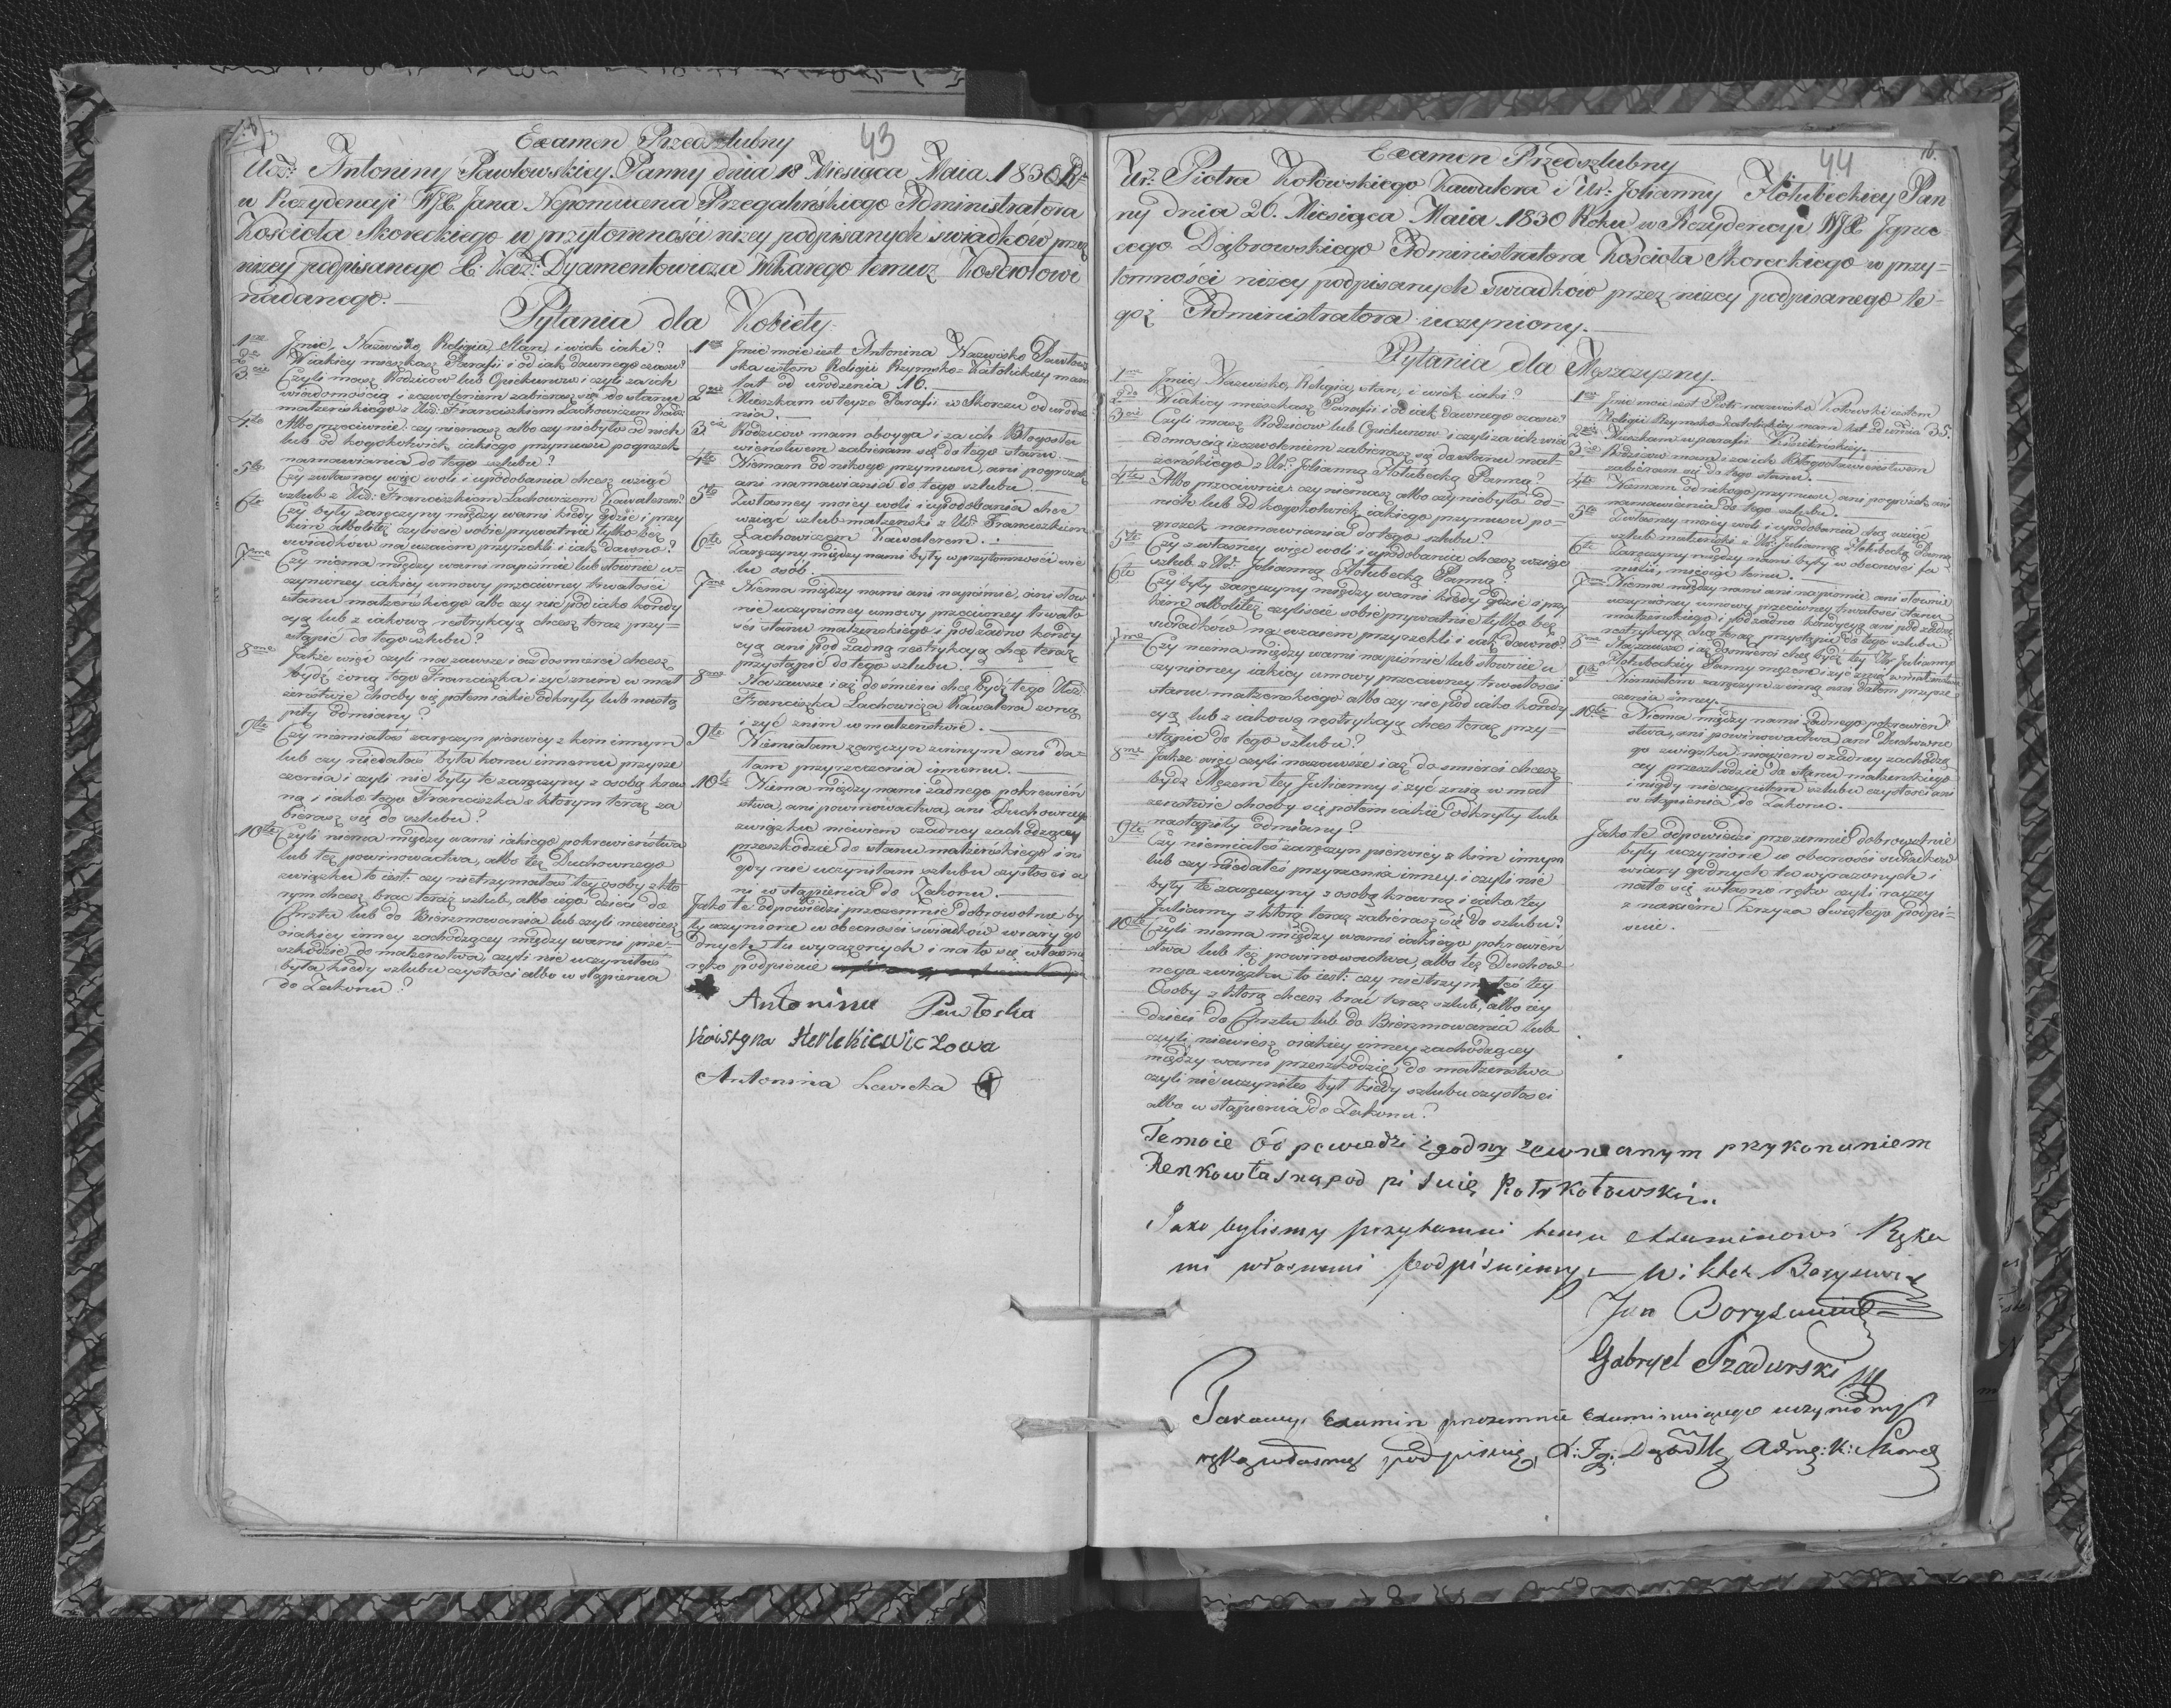 43
Examen Przedszlubny
Ucz: Antoniny Pawłowskiey Panny dnia 18 Miesiąca Maia 1830 R:
w Rezydencji WJX. Jana Nepomucena Przegalińskiego Administratora
Kościoła Skoreckiego w przytomności niżey podpisanych swiadkow przez
niżey podpisanego X: Kaź: Dyamentowicza Wikarego temuż Kosciołowi
nadanego.
Pytania dla Kobiety.
1sze Jmie, Nazwisko, Religia, Stan, i wiek iaki?
2gie W iakiey mieszkasz Parafii i od iak dawnego czasu?
3cie Czyli masz Rodzicow lub Opiekunow i czyli za ich
wiadomością i zezwoleniem zabierasz się do stanu
małżeńskiego z Ucz: Franciszkiem Lachowiczem Kawal:
4te Albo przeciwnie: czy niemasz albo czy niebyło od nich
lub od kogokolwiek iakiego przymusu pogrozek
namawiania do tego szlubu?
5te Czy z własney więc woli i upodobania chcesz wziąć
szlub z Ucz: Franciszkiem Lachowiczem Kawalerem?
6te Czy były zaręczyny między wami kiedy gdzie i przy
kim albo też czyliscie sobie prywatnie tylko bez
swiadkow na wzaiem przyrzekli i iak dawno?
7me Czy niema między wami napismie lub słownie u-
czynioney iakiey umowy przeciwney trwałości
stanu małżeńskiego albo czy nie pod iako kondy
cyą lub z iakową restrykcyą chcesz teraz przy=
stąpić do tego szlubu?
8me Jakże więc czyli na zawsze i aż do smierci chcesz
bydź żoną tego Franciszka i żyć z nim w mał
żeństwie choćby się potem iakie odkryły lub nastą
piły odmiany?
9te Czy niemiałaś zaręczyn pierwiey z kim innym
lub czy niedałaś była komu innemu przyrze
czenia i czyli nie były te zaręczyny z osobą krew
ną i iako tego Franciszka z ktorym teraz za
bierasz się do szlubu?
10te Czyli niema między wami iakiego pokrewieństwa
lub też powinowactwa, albo też Duchownego
związku to iest: czy nietrzymałaś tey osoby z kto
rym chcesz brac teraz szlub, albo iego dzieci do
Chrztu lub do Bierzmowania lub czyli niewiesz
oiakiey inney zachodzącey między wami prze=
szkodzie do małżenstwa, czyli nie uczyniłaś
była kiedy szlubu czystości albo wstąpienia
do Zakonu?
1sze Jmie moie iest Antonina Nazwisko Pawłow
ska iestem Religii Rzymsko-Katolickiey mam
lat od urodzenia 16.
2gie Mieszkam w teyże Parafii w Skorcu od urodze
nia.
3cie Rodzicow mam oboyga i za ich Błogosła
wieństwem zabieram się do tego stanu.
4te Niemam od nikogo przymusu, ani pogrozek
ani namawiania do tego szlubu.
5te Zwłasney moiey woli i upodobania chce
wziąć szlub małżenski z Ucz: Franciszkiem
Lachowiczem Kawalerem.
6te Zaręczyny między nami były w przytomności wie
lu osób.
7me Niema między nami ani napismie, ani słow
nie uczynioney umowy przeciwney trwało
ści stanu małżenskiego i pod żadną kondy
cyą ani pod żadną restrykcyą chcę teraz
przystąpić do tego szlubu.
8me Na zawsze i aż do śmierci chcę bydź tego Ucz:
Franciszka Lachowicza Kawalera żoną
i żyć z nim w małżeństwie.
9te Niemiałam zaręczyn z innym ani da=
łam przyrzeczenia innemu.
10te Niema między nami żadnego pokrewień
stwa, ani powinowactwa, ani Duchownego
związku niewiem o żadney zachodzącey
przeszkodzie do stanu małżeńskiego i ni
gdy nie uczyniłam szlubu czystości a
ni wstąpienia do Zakonu.
Jako te odpowiedzi przezemnie dobrowolnie by
ły uczynione w obecności swiadkow wiary go
dnych tu wyrażonych i na to się własną
ręko podpisuie
Antonina Pawłoska
Antonina Lewicka
44
16.
Examen Przedszlubny
Ur: Piotra Kotowskiego Kawalera i Ur: Jolianny Hołubeckiey Pan
ny dnia 20. Miesiąca Maia 1830 Roku w Rezydencyi WJX Jgna
cego Dąbrowskiego Administratora Kościoła Skoreckiego w przy=
tomności niżey podpisanych swiadków przez niżey podpisanego te-
goż Administratora uczyniony.
Pytania dla Męszczyzny.
1sze Jmie, Nazwisko, Religia, stan, i wiek iaki?
2gie W iakiey mieszkasz Parafii i od iak dawnego czasu?
3cie Czyli masz Rodzicow lub Opiekunow i czyli za ich wia
domością i zezwoleniem zabierasz się do stanu mał-
żeńskiego z Ur: Julianną Hołubecką Panną?
4te Albo przeciwnie: czy niemasz albo czy niebyło od-
nich lub od kogokolwiek iakiego przymusu po-
grozek namawiania do tego szlubu?
5te Czy z własney więc woli i upodobania chcesz wziąść
szlub z Ur: Julianną Hołubecką Panną?
6te Czy były zaręczyny między wami kiedy gdzie i przy
kim albo też czyliscie sobie prywatnie tylko bez
swiadków na wzaiem przyrzekli i iak dawno?
7me Czy niema między wami napismie lub słownie u
czynioney iakiey umowy przeciwney trwałości
stanu małżenskiego albo czy nie pod iako kondy
cyą lub z iakową restrykcyą chcesz teraz przy=
stąpic do tego szlubu?
8me Jakże więc czyli nazawsze i aż do smierci chcesz
bydź Mężem tey Julianny i żyć z nią w mał
żenstwie choćby się potem iakie odkryły lub
nastąpiły odmiany?
9te Czy niemiałeś zaręczyn pierwiey z kim innym
lub czy niedałeś przyrzeczenia inney i czyli nie
były te zaręczyny z osobą krewną i iako tey
Julianny z ktorą teraz zabierasz się do szlubu?
10te Czyli niema między wami iakiego pokrewień
stwa lub też powinowactwa, albo też Duchow
nego związku to iest: czy nietrzymałeś tey
Osoby z ktorą chcesz brać teraz szlub, albo iey
dzieci do Chrztu lub do Bierzmowania lub
czyli niewiesz oiakiey inney zachodzącey
między wami przeszkodzie do małżenstwa
czyli nie uczyniłeś był kiedy szlubu czystości
albo wstąpienia do Zakonu?
1sze Jmie moie iest Piotr nazwisko Kotowski iestem
Religii Rzymsko-Katolickiey mam lat od urodzenia 35.
2gie Mieszkam w parafii
3cie Rodzicow mam i za ich Błogosławieństwem
zabieram się do tego stanu.
4te Niemam od nikogo przymusu ani pogrozek ani
namawiania do tego szlubu.
5te Zwłasney moiey woli i upodobania chcę wziąść
szlub małżenski z Ur: Julianną Hołubecką Panną
6te Zaręczyny między nami były w obecności fa-
milii, miesiąc temu.
7me Niema między nami ani napismie ani słownie
uczynioney umowy przeciwney trwałości stanu
małżenskiego i pod żadno kondycyą ani pod żadną
restrykcyą chcę teraz przystąpić do tego szlubu
8me Na zawsze i aż do smierci chcę bydź tey Ur: Julianny
Hołubeckiey Panny mężem i żyć z nią w małżenstwie
9te Niemiałem zaręczyn z inną ani dałem przyrze
czenia inney.
10te Niema między nami żadnego pokrewień
stwa, ani powinowactwa, ani Duchowne
go związku, niewiem o żadney zachodzą
cey przeszkodzie do stanu małżenskiego
i nigdy nieuczyniłem szlubu czystości ani
wstąpienia do Zakonu.
Jako te odpowiedzi przezemnie dobrowolnie
były uczynione w obecności swiadków
wiary godnych tu wyrażonych i
nato się własno ręko czyli niżey
znakiem Krzyża Swiętego podpi=
suie.
Temoie odpowiedzi zgodny zewnęanym przykonaniem
Renkowłasną pod pi suię Piotr Kotowski
Jako bylismy przytomni temu examinowi Ręka
mi własnemi podpisuiemy Wikter Borysewicz
Jan Borysewicz
Gabryel Szadurski
Takowy Examin przezemnie Examinuiącego uczyniony
ręką własną podpisuię X: Jg: Adm: K: Skorec